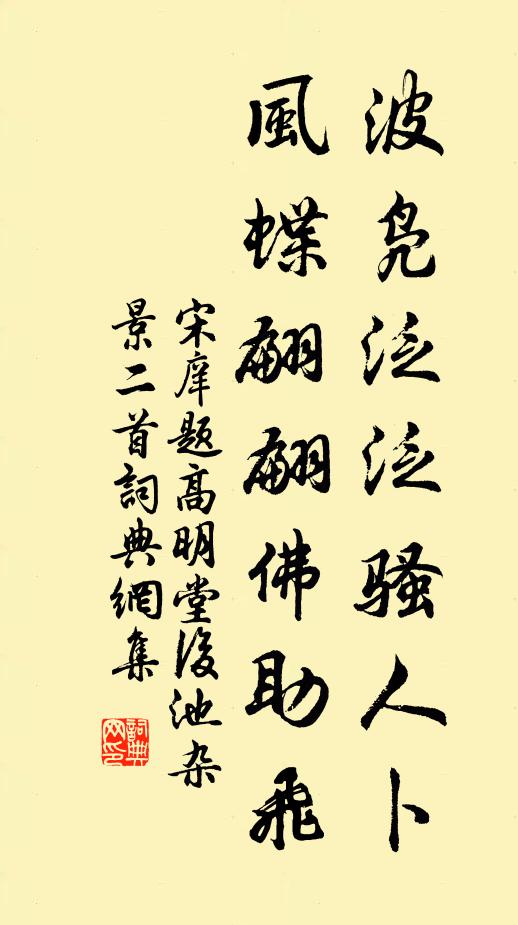 波凫泛泛骚人卜
風蝶翩翩佛助飛
宋庠题高明堂後池杂
景二首詞典網集
詞典網印